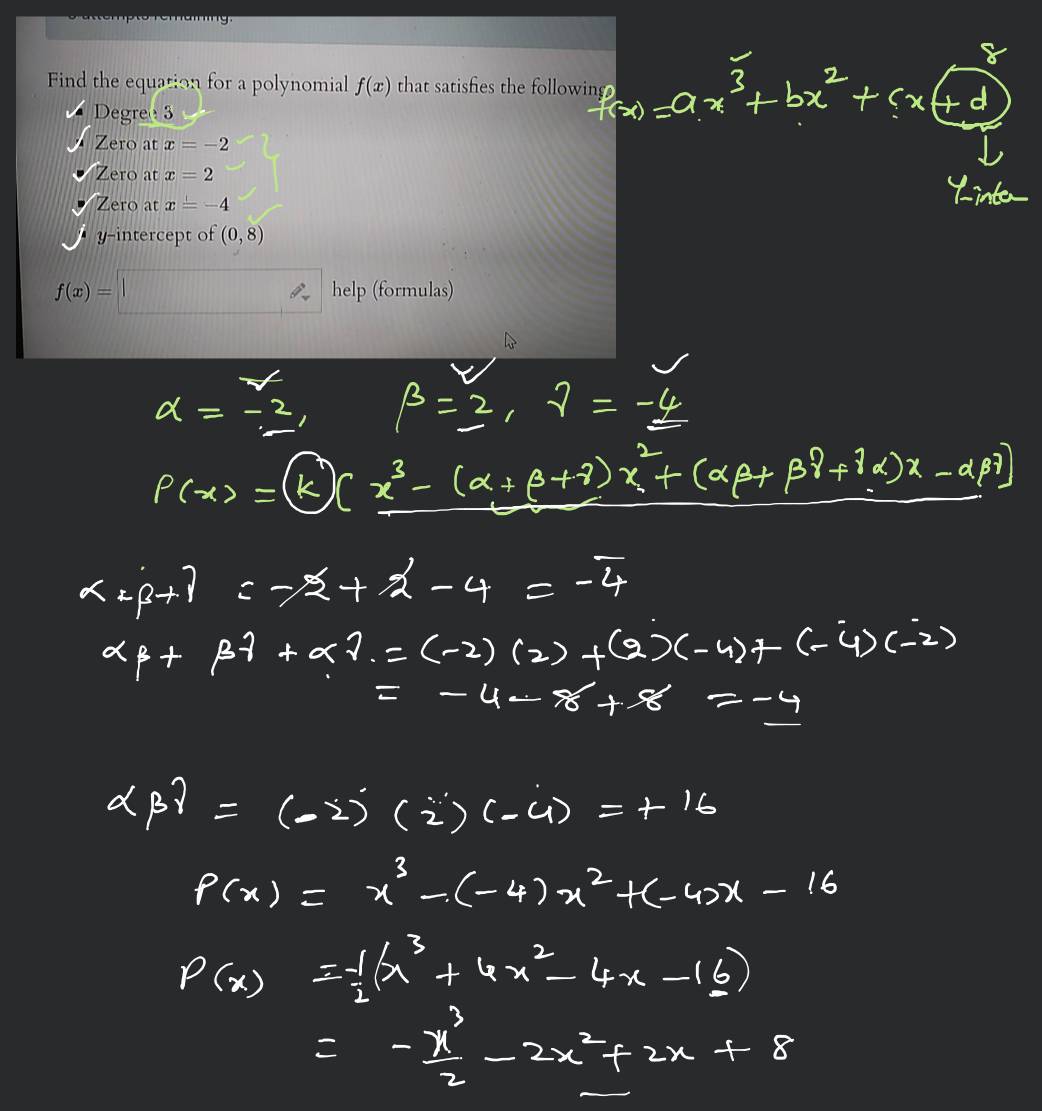 3 attempts remaining.
Find the equation for a polynomial f(x) that satisfies the following
▪ Degree 3
▪ Zero at x = −2
▪ Zero at x = 2
▪ Zero at x = −4
▪ y-intercept of (0, 8)
f(x) =
help (formulas)
8
f(x) = ax³ + bx² + cx + d
↓
Y-inter
α = -2, β = 2, γ = -4
P(x) = k[ x³ - (α + β + γ)x² + (αβ + βγ + γα)x - αβγ]
α + β + γ = -2 + 2 - 4 = -4
αβ + βγ + αγ. = (-2) (2) + (2)(-4) + (-4)(-2)
= -4 - 8 + 8 = -4
αβγ = (-2) (2) (-4) = + 16
P(x) = x³ - (-4)x² + (-4)x - 16
P(x) = -1/2 (x³ + 4x² - 4x - 16)
= -x³/2 - 2x² + 2x + 8